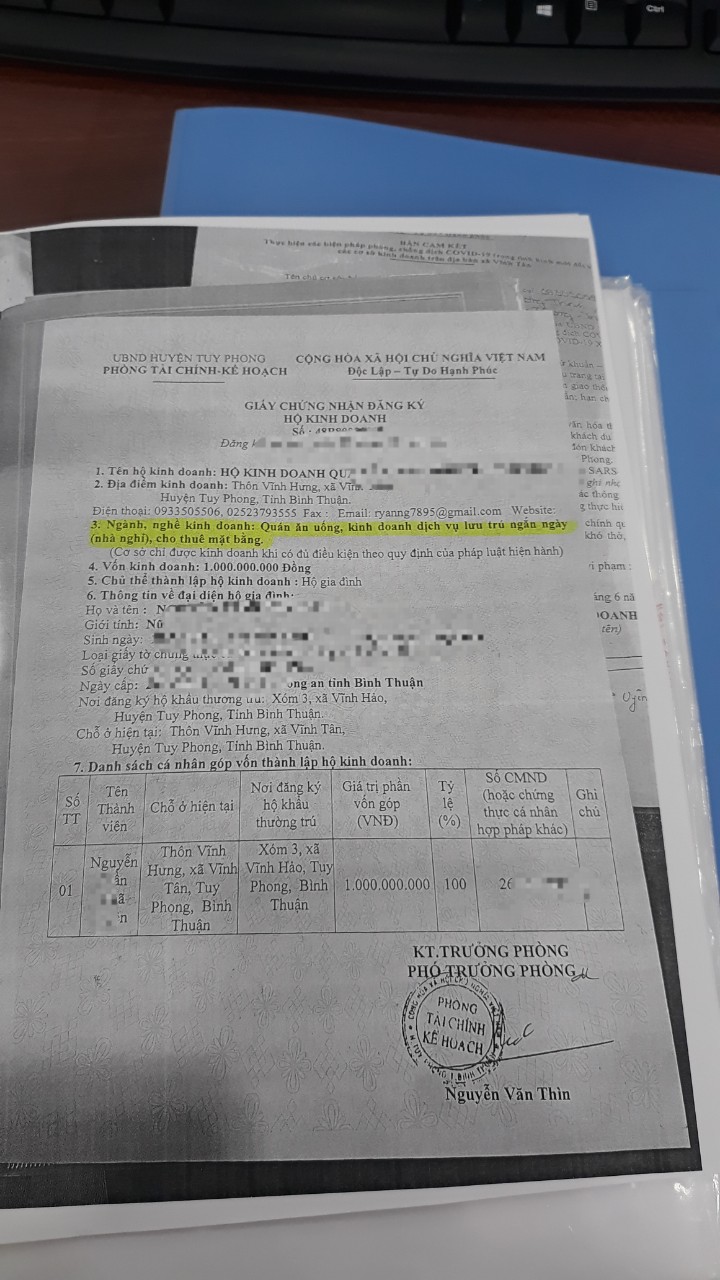 Ctrl
BẢN CAM KẾT
Thực hiện các biện pháp phòng, chống dịch COVID-19 trong tình hình mới đối
các cơ sở kinh doanh trên địa bàn xã Vĩnh Tân
UBND HUYỆN TUY PHONG
PHÒNG TÀI CHÍNH-KẾ HOẠCH
CỘNG HÒA XÃ HỘI CHỦ NGHĨA VIỆT NAM
Độc Lập – Tự Do Hạnh Phúc
GIẤY CHỨNG NHẬN ĐĂNG KÝ
HỘ KINH DOANH
Số
Đăng k
1. Tên hộ kinh doanh: HỘ KINH DOANH QU
2. Địa điểm kinh doanh: Thôn Vĩnh Hưng, xã Vĩnh
Huyện Tuy Phong, Tỉnh Bình Thuận.
Điện thoại: 0933505506, 02523793555 Fax : Email: ryanng7895@gmail.com Website:
3. Ngành, nghề kinh doanh: Quán ăn uống, kinh doanh dịch vụ lưu trú ngắn ngày
(nhà nghỉ), cho thuê mặt bằng.
(Cơ sở chỉ được kinh doanh khi có đủ điều kiện theo quy định của pháp luật hiện hành)
4. Vốn kinh doanh: 1.000.000.000 Đồng
5. Chủ thể thành lập hộ kinh doanh : Hộ gia đình
6. Thông tin về đại diện hộ gia đình:
Họ và tên : N
Giới tính: Nữ
Sinh ngày:
Loại giấy tờ chứng thực
Số giấy chứ
Ngày cấp: ông an tỉnh Bình Thuận
Nơi đăng ký hộ khẩu thường trú: Xóm 3, xã Vĩnh Hảo,
Huyện Tuy Phong, Tỉnh Bình Thuận.
Chỗ ở hiện tại: Thôn Vĩnh Hưng, xã Vĩnh Tân,
Huyện Tuy Phong, Tỉnh Bình Thuận.
7. Danh sách cá nhân góp vốn thành lập hộ kinh doanh:
Số TT
Tên Thành viên
Chỗ ở hiện tại
Nơi đăng ký hộ khẩu thường trú
Giá trị phần vốn góp (VNĐ)
Tỷ lệ (%)
Số CMND (hoặc chứng thực cá nhân hợp pháp khác)
Ghi chú
01
Nguyễn
Thôn Vĩnh Hưng, xã Vĩnh Tân, Tuy Phong, Bình Thuận
Xóm 3, xã Vĩnh Hảo, Tuy Phong, Bình Thuận
1.000.000.000
100
26
KT.TRƯỞNG PHÒNG
PHÓ TRƯỞNG PHÒNG
PHÒNG
TÀI CHÍNH
KẾ HOẠCH
Nguyễn Văn Thìn